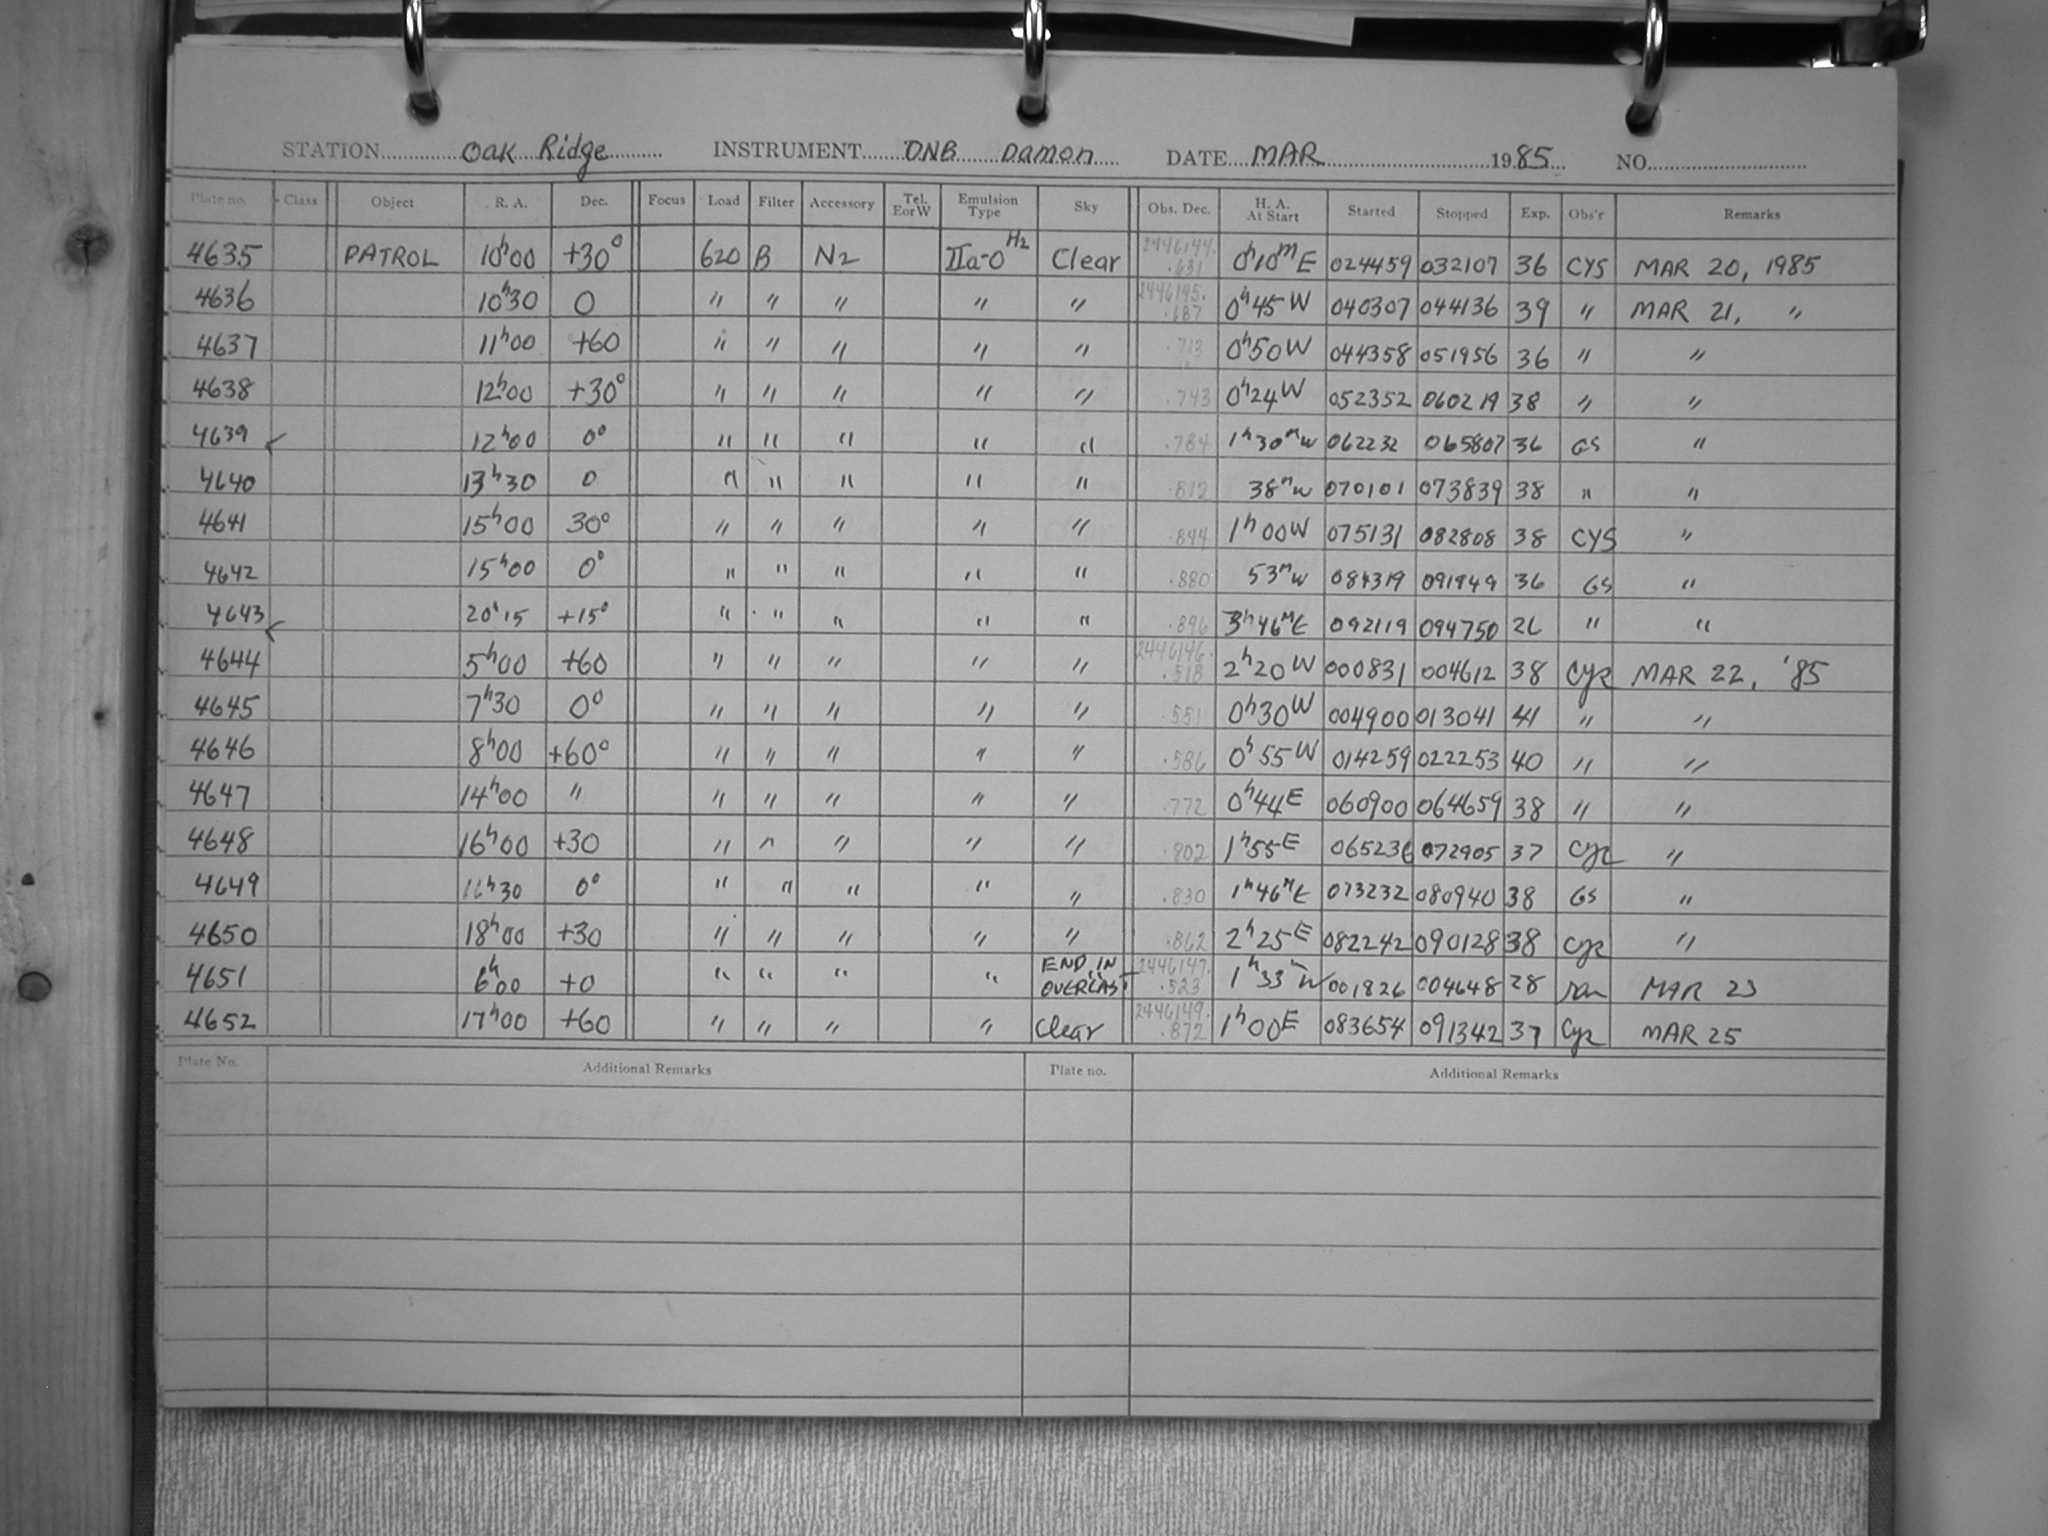 STATION Oak Ridge INSTRUMENT DNB Damon DATE MAR 1985 NO.
Plate no. Class Object R. A. Dec. Focus Load Filter Accessory Tel. EorW Emulsion Type Sky Obs. Dec. H. A. At Start Started Stopped Exp. Obs'r Remarks
4635 PATROL 10h00 +30° 620 B N2 IIa-O H2 Clear 2446144. .631 0h10mE 024459 032107 36 CYS MAR 20, 1985
4636 10h30 0 " " " " " 2446145. .687 0h45W 040307 044136 39 " MAR 21, "
4637 11h00 +60 " " " " " .713 0h50W 044358 051956 36 " "
4638 12h00 +30° " " " " " .743 0h24W 052352 060219 38 " "
4639 12h00 0° " " " " " .784 1h30mW 062232 065807 36 GS "
4640 13h30 0 " " " " " .812 38mW 070101 073839 38 " "
4641 15h00 30° " " " " " .844 1h00W 075131 082808 38 CYS "
4642 15h00 0° " " " " " .880 53mW 084319 091949 36 GS "
4643 20h15 +15° " " " " " .896 3h46mE 092119 094750 26 " "
4644 5h00 +60 " " " " " 2446146. .518 2h20W 000831 004612 38 Cyr MAR 22, '85
4645 7h30 0° " " " " " .551 0h30W 004900 013041 41 " "
4646 8h00 +60° " " " " " .586 0h55W 014259 022253 40 " "
4647 14h00 " " " " " " .772 0h44E 060900 064659 38 " "
4648 16h00 +30 " " " " " .802 1h55E 065236 072905 37 Cyr "
4649 16h30 0° " " " " " .830 1h46mE 073232 080940 38 GS "
4650 18h00 +30 " " " " " .862 2h25E 082242 090128 38 Cyr "
4651 6h00 +0 " " " " END IN OVERCAST 2446147. .523 1h33mW 001826 004648 28 MAR 23
4652 17h00 +60 " " " " Clear 2446149. .872 1h00E 083654 091342 37 Cyr MAR 25
Plate No. Additional Remarks Plate no. Additional Remarks